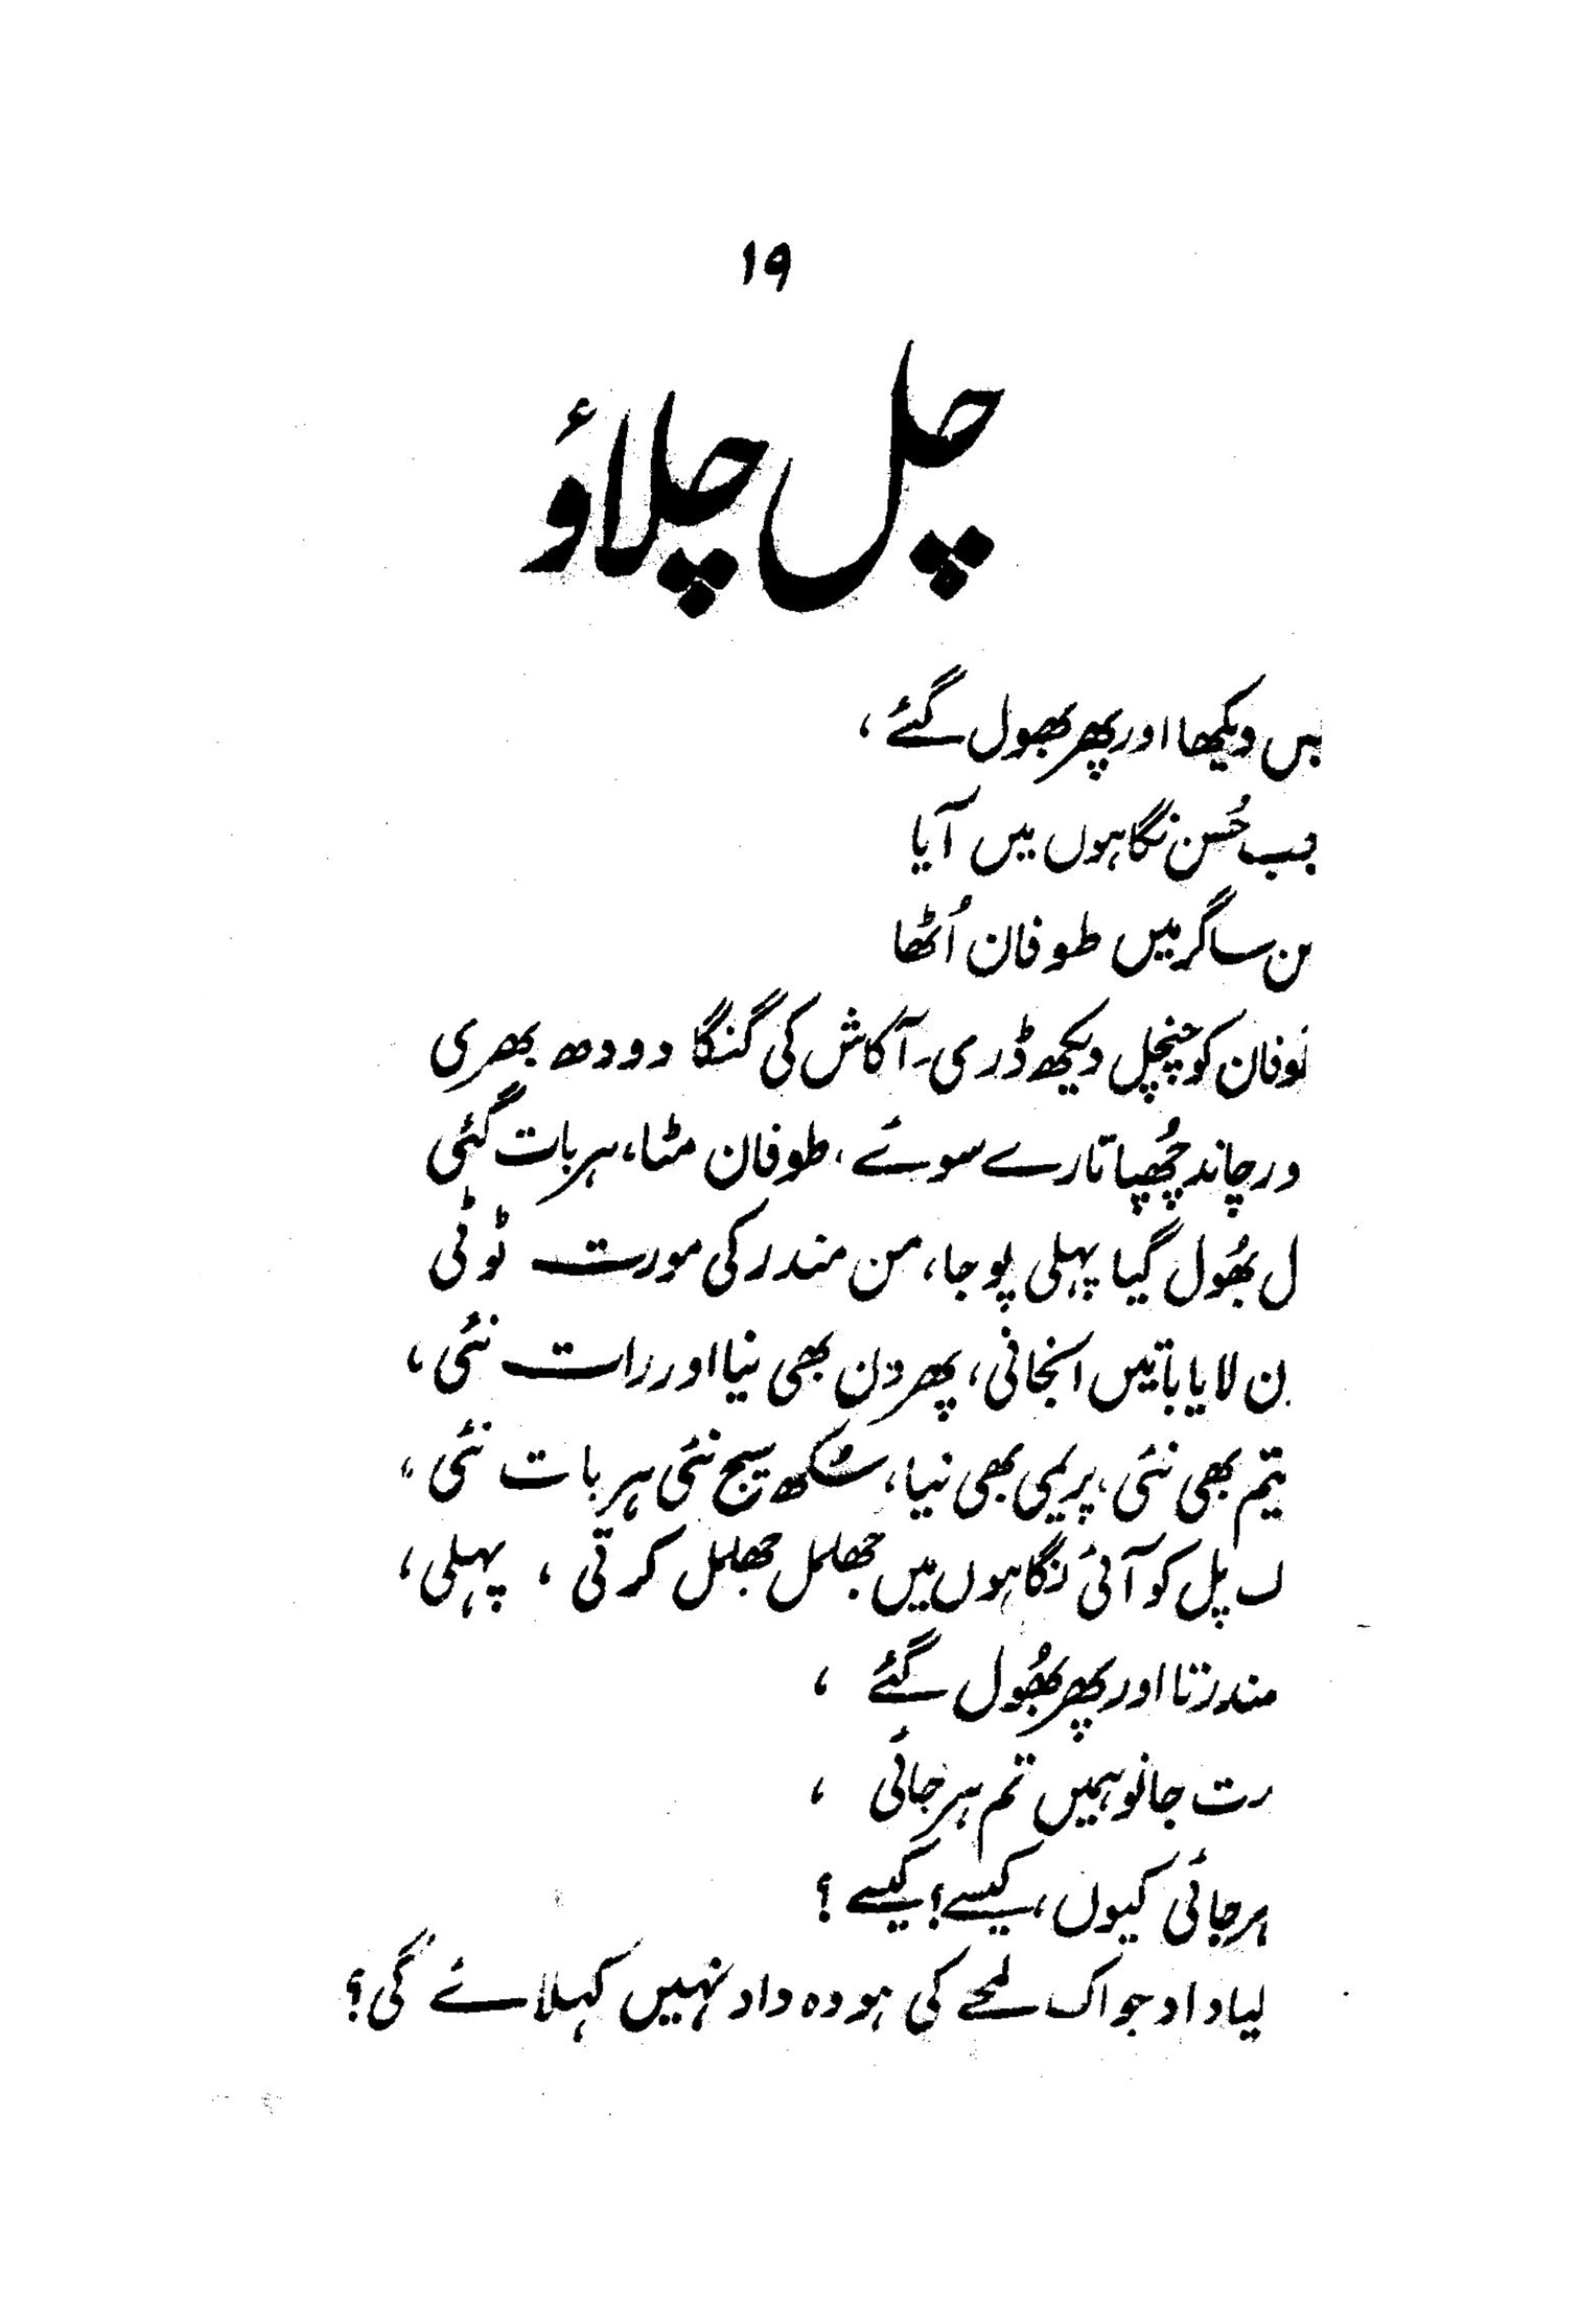 ۱۹
چل چلاؤ
بس دیکھا اور پھر بھول گئے،
جب حُسن نگاہوں میں آیا
من ساگر میں طوفان اُٹھا
طوفان کو چنچل دیکھ ڈری۔ آکاش کی گنگا دودھ بھری
اور چاند چُھپا تارے سوئے، طوفان مٹا، ہر بات گئی
دل بھُول گیا پہلی پوجا، من مندر کی مورت ٹوٹی
دن لایا باتیں انجانی، پھر دن بھی نیا اور رات نئی،
پیتم بھی نئی، پریمی بھی نیا، سُکھ سیج نئی ہر بات نئی،
اک پل کو آئی نگاہوں میں جھلمل جھلمل کرتی، پہلی،
سندرتا اور پھر بھُول گئے،
مت جانو ہمیں تم ہرجائی،
ہرجائی کیوں، کیسے؟ کیسے؟
کیا داد جو اک لمحے کی ہو وہ داد نہیں کہلائے گی؟